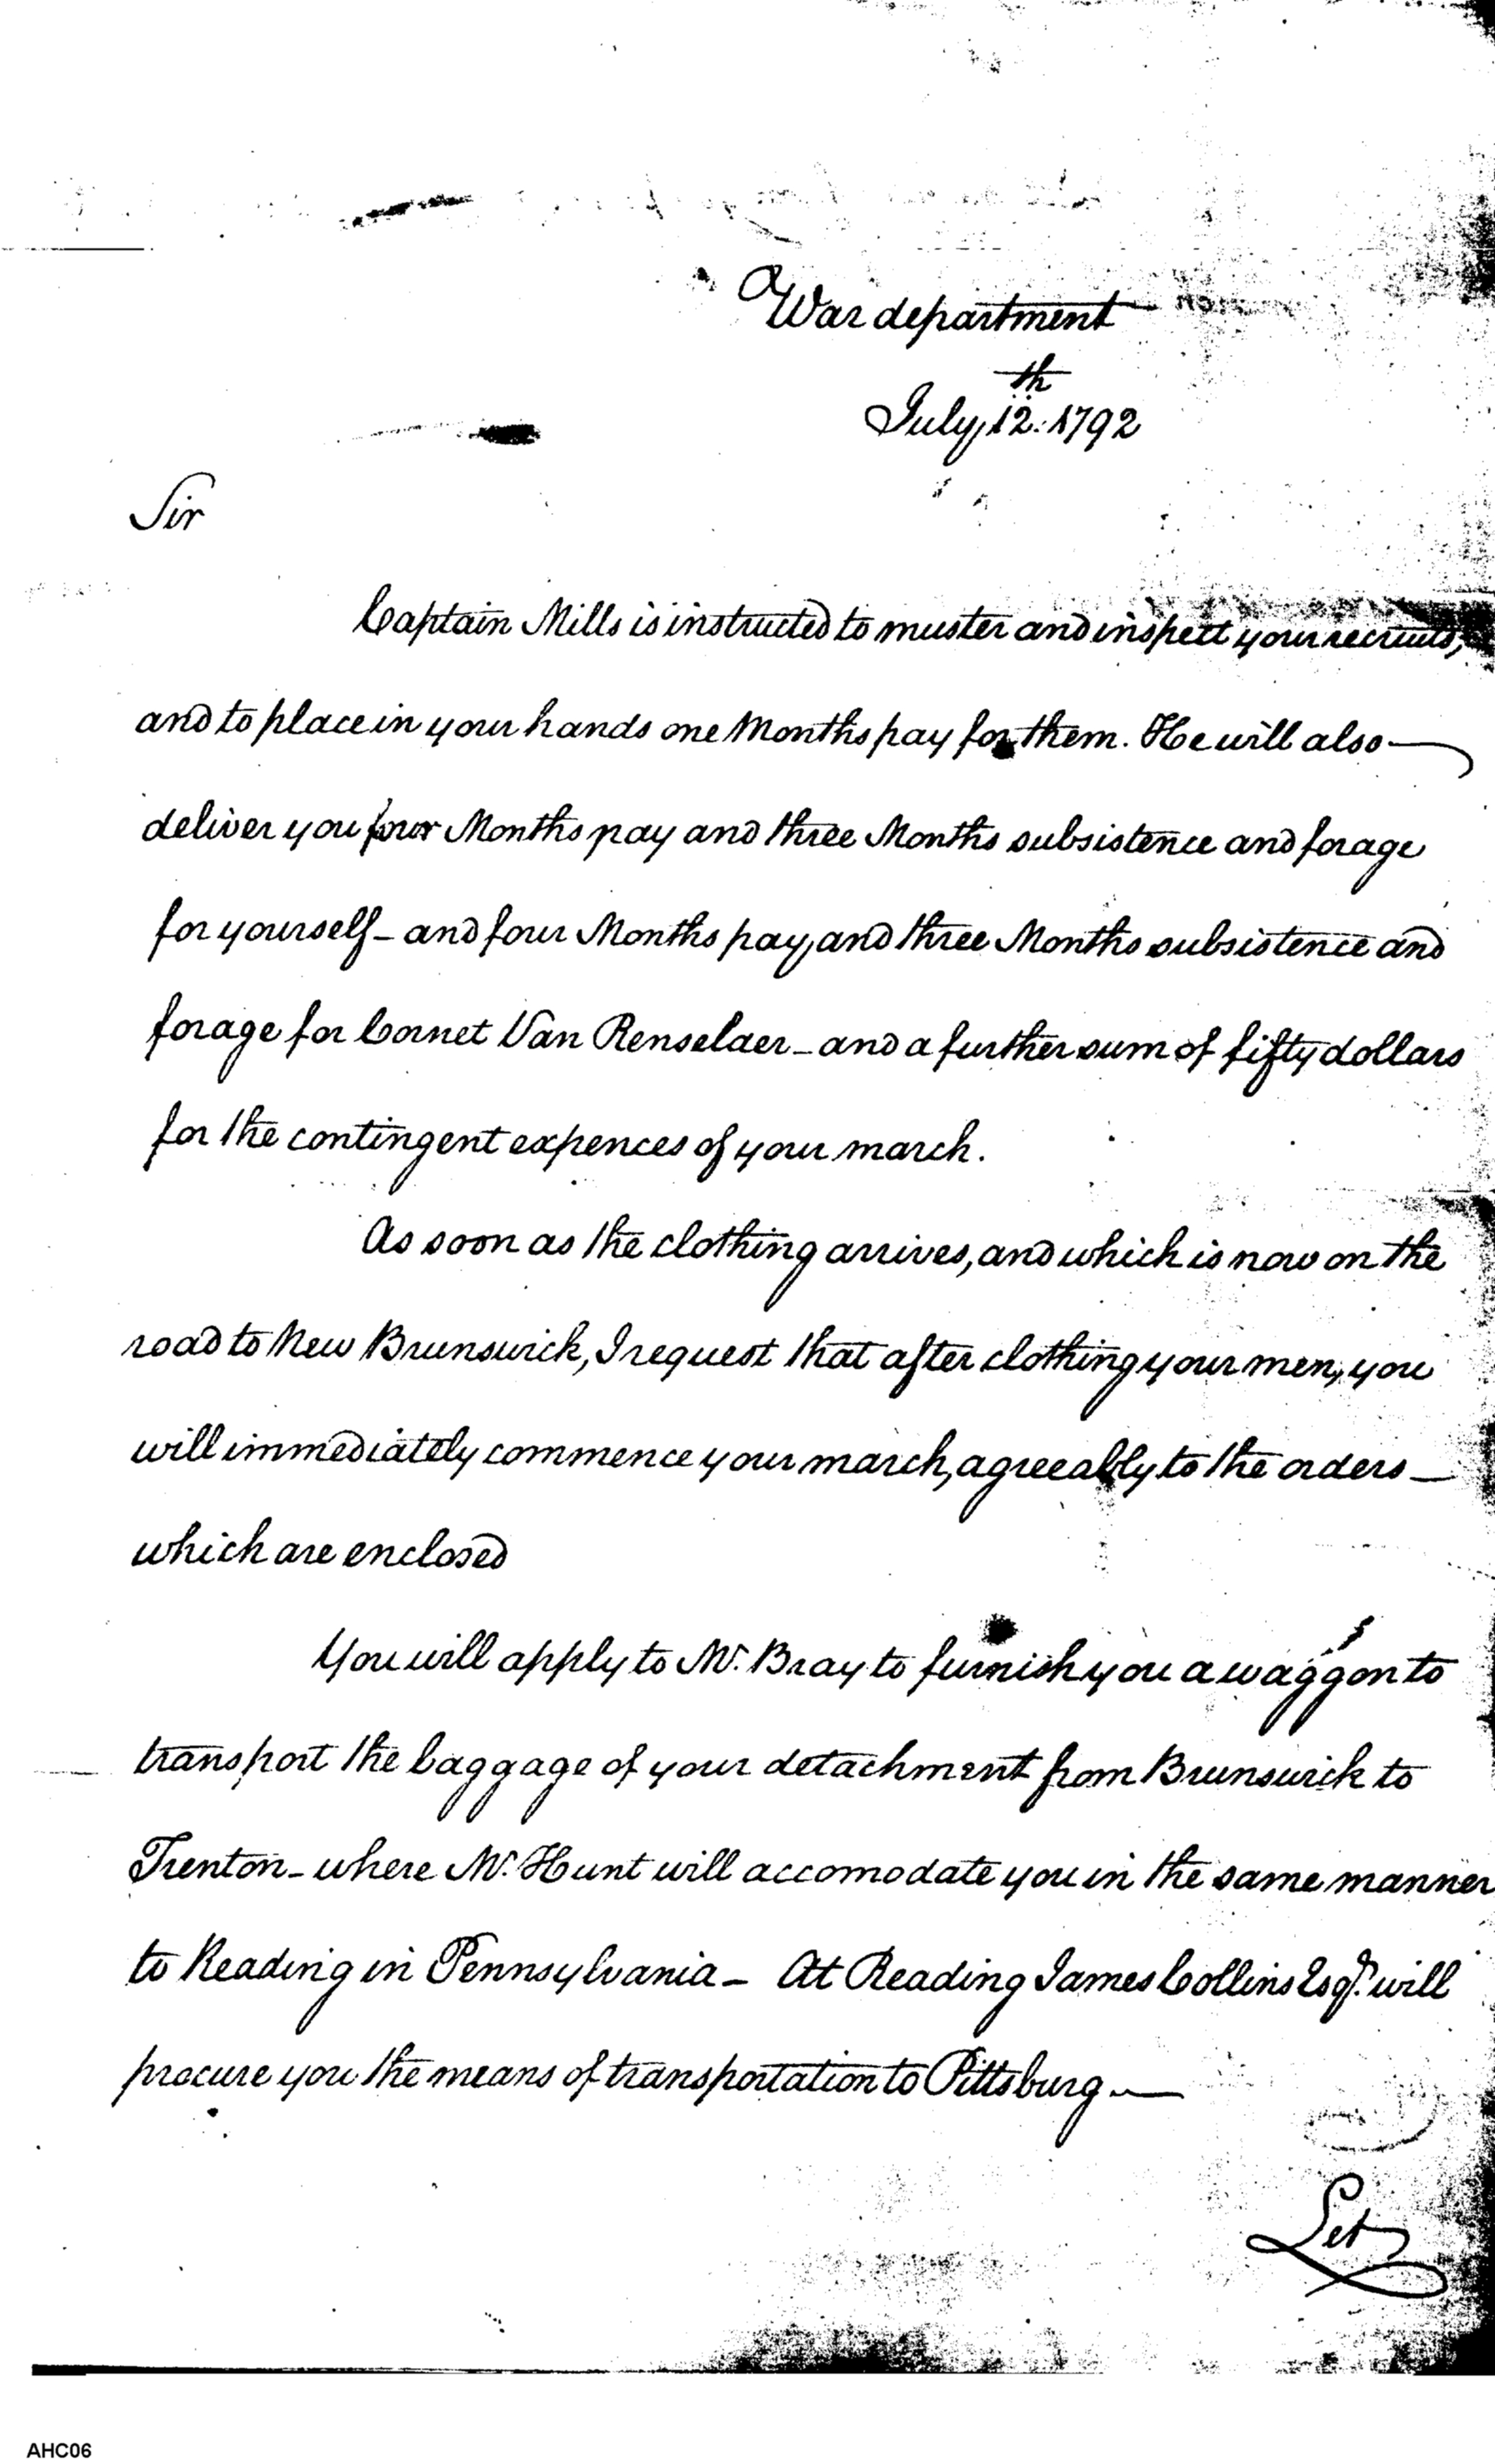 War department
July 12.th 1792
Sir
Captain Mills is instructed to muster and inspect your recruits,
and to place in your hands one Months pay for them. He will also
deliver you four Months pay and three Months subsistence and forage
for yourself - and four Months pay, and three Months subsistence and
forage for Cornet Van Renselaer - and a further sum of fifty dollars
for the contingent expences of your march.
As soon as the clothing arrives, and which is now on the
road to New Brunswick, I request that after clothing your men, you
will immediately commence your march, agreeably to the orders
which are enclosed
You will apply to Mr. Bray to furnish you a waggon to
transport the baggage of your detachment from Brunswick to
Trenton - where Mr. Hunt will accomodate you in the same manner
to Reading in Pennsylvania - At Reading James Collins Esqr. will
procure you the means of transportation to Pittsburg
Let
AHC06